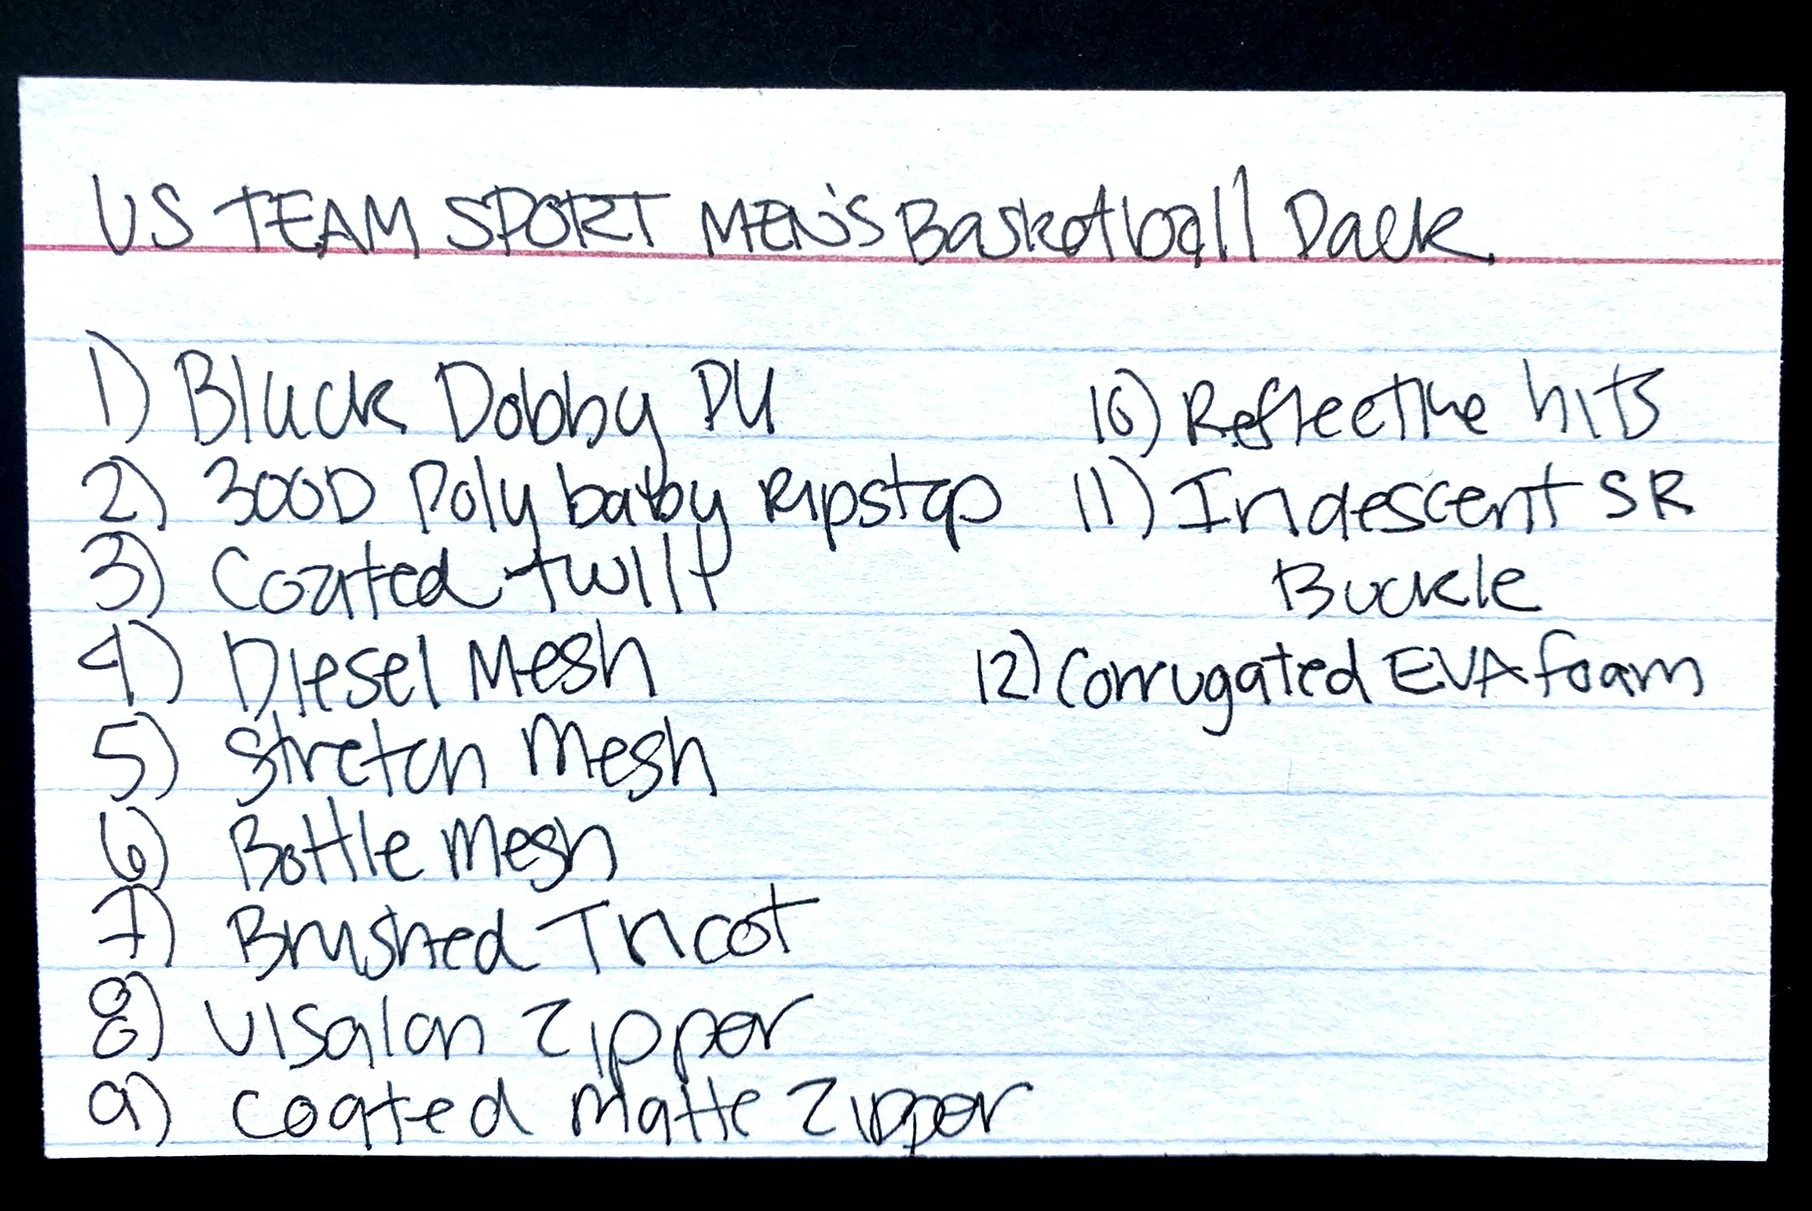 US TEAM SPORT MEN'S Basketball Pack
1) Black Dobby PU
2) 300D Poly baby Ripstop
3) Coated twill
4) Diesel Mesh
5) Stretch Mesh
6) Bottle Mesh
7) Brushed Tricot
8) Vislon Zipper
9) Coated Matte Zipper
10) Reflective hits
11) Iridescent SR
Buckle
12) Corrugated EVA foam